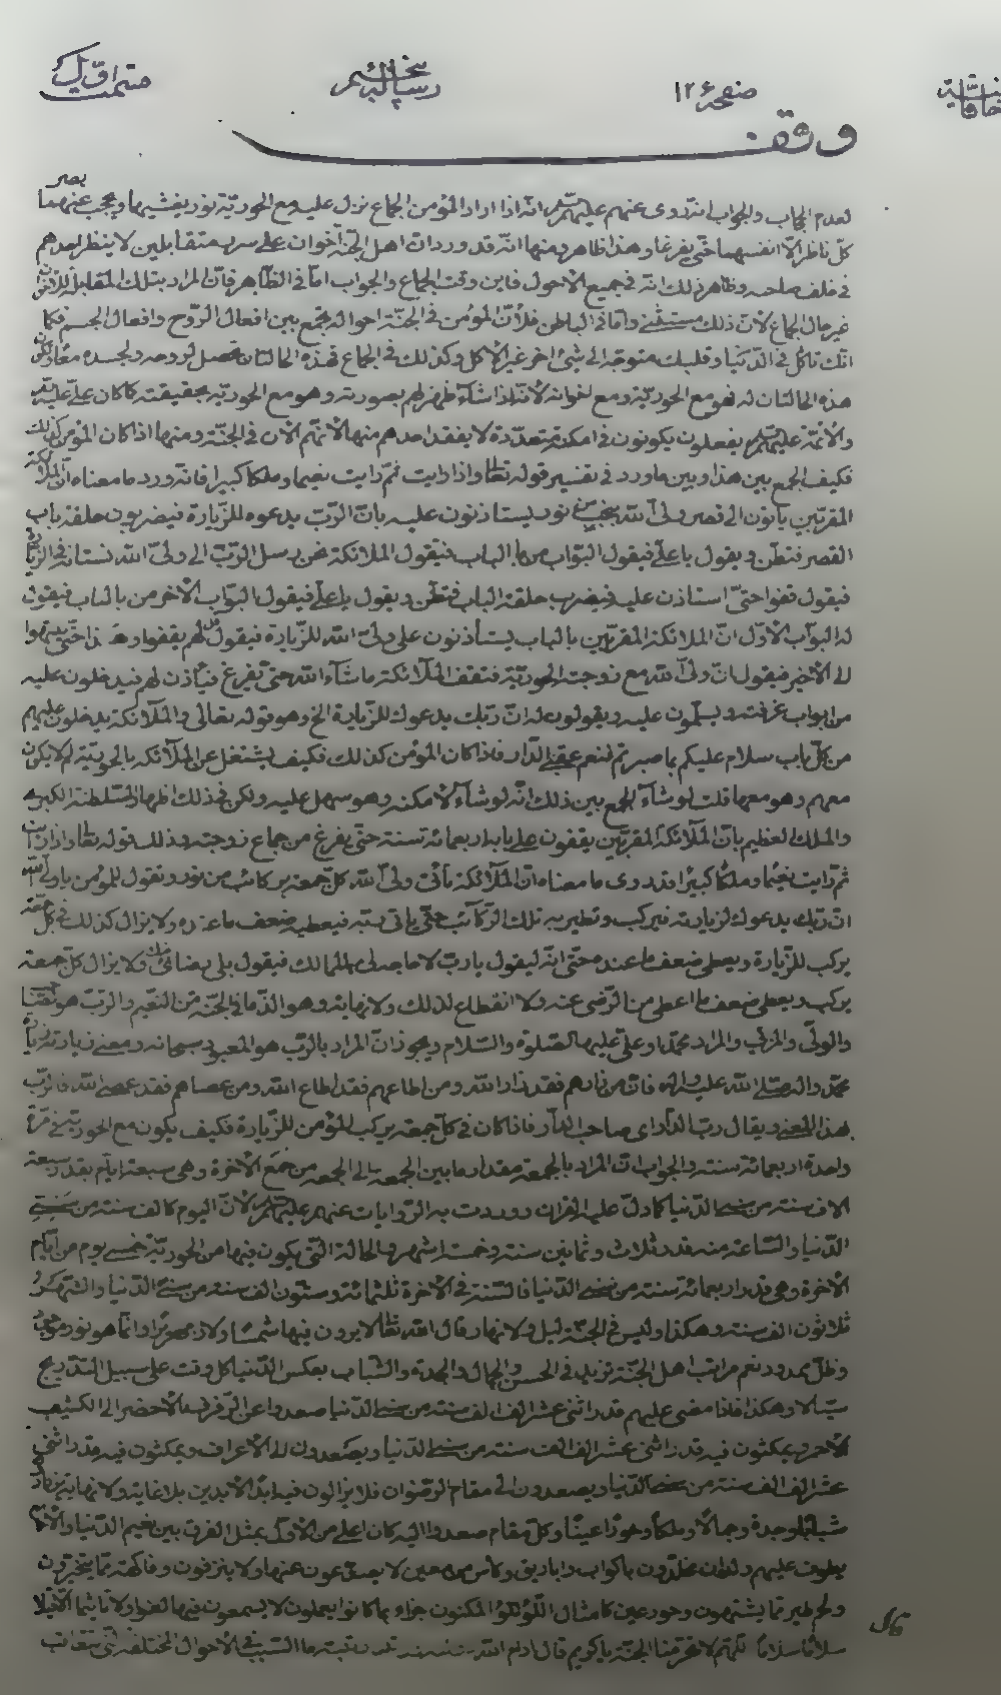 صفحه ١٢٦
وقف
لعدم الحجاب والجواب انه روى عنهم عليهم السلم انه اذا اراد المؤمن الجماع نزل عليه ومع الحوريّة نور يغشيهما ويحجب عنهما بصر
كلّ ناظر الّا انفسهما حتى يفرغا وهذا ظاهر ومنها انّه قد ورد ان اهل الجنّة اخوان على سرر متقابلين لا ينظر احدهم
فى خلف صاحبه وظاهر ذلك انه فى جميع الاحول فاين وقت الجماع والجواب امّا فى الظاهر فانّ المراد بتلك المقابلة
غير حال الجماع لانّ ذلك مستثنى وامّا فى الباطن فلأنّ المؤمن فى الجنّة احواله تجمع بين افعال الروح وافعال الجسم فكما
انّك تاكل فى الدّنيا وقلبك متوجّه الى شىء اخر غير الاكل وكذلك فى الجماع فهذه الحالتان تحصل لروحه ولجسده معًا
هذه الحالتان له فهو مع الحوريّة ومع اخوانه لانّه اذا شاء ظهر لهم بصورته وهو مع الحوريّة بحقيقته كما كان علىّ عليه
والائمّة عليهم السلم يفعلون يكونون فى امكنة متعدّدة لا يفقد احدهم منها لانّهم الان فى الجنّة ومنها اذا كان المؤمن كذلك
فكيف الجمع بين هذا وبين ما ورد فى تفسير قوله تعالى واذا رايت ثمّ رايت نعيما وملكا كبيرا فانّه ورد ما معناه انّ الملائكة
المقرّبين ياتون الى قصر ولىّ الله بنجب من نور يستاذنون عليه بانّ الربّ يدعوه للزّيارة فيضربون حلقة باب
القصر فتطنّ ويقول يا علىّ فيقول البوّاب من بالباب فيقول الملائكة نحن رسل الربّ الى ولىّ الله نستاذنه فى الزيارة
فيقول قفوا حتّى استاذن عليه فيضرب حلقة الباب فتطنّ ويقول يا علىّ فيقول البوّاب الاخر من بالباب فيقول
له البوّاب الاوّل انّ الملائكة المقرّبين بالباب يستأذنون على ولىّ الله للزّيارة فيقول لهم يقفوا وهكذا حتّى ينتهوا
الى الاخير فيقول انّ ولىّ الله مع زوجته الحوريّة فتقف الملائكة ما شاء الله حتّى يفرغ فيأذن لهم فيدخلون عليه
من ابواب غرفته ويسلّمون عليه ويقولون له انّ ربّك يدعوك للزّيارة الخ وهو قوله تعالى والملائكة يدخلون عليهم
من كلّ باب سلام عليكم بما صبرتم فنعم عقبى الدّار فاذا كان المؤمن كذلك فكيف يشتغل عن الملائكة بالحوريّة لم لا يكون
معهم وهو معها قلت لو شاء الجمع بين ذلك انّه لو شاء لامكنه وهو سهل عليه ولكن فى ذلك اظهار السّلطنة الكبرى
والملك العظيم بانّ الملائكة المقرّبين يقفون على بابه اربعمائة سنة حتّى يفرغ من جماع زوجته وذلك قوله تعالى واذا رايت
ثمّ رايت نعيما وملكًا كبيرًا قد روى ما معناه انّ الملائكة تأتى ولىّ الله كلّ جمعة بركائب من نور وتقول للمؤمن يا ولىّ الله
انّ ربّك يدعوك لزيارته فيركب وتطير به تلك الركائب حتّى ياتى ربّه فيعطيه ضعف ما عنده ولا يزال كذلك فى كلّ جمعة
يركب للزّيارة ويعطى ضعف ما عنده حتّى انّه ليقول يا ربّ لا حاجة لى بالممالك فيقول بلى رضائى عنك ولا يزال كلّ جمعة
يركب ويعطى ضعف ما اعطى من الرّضى عنه ولا انقطاع لذلك ولا نهاية وهو الذّ ما فى الجنّة من النّعيم والربّ هو
والولّى والمربّى والمراد محمّد او علىّ عليهما الصّلوة والسّلام ويجوز انّ المراد بالربّ هو المعبود سبحانه ومعنى زيارته زيارة
محمّد واله صلّى الله عليه واله فانّ من زارهم فقد زار الله ومن اطاعهم فقد اطاع الله ومن عصاهم فقد عصى الله فالربّ
بهذا المعنى ويقال ربّ الدّار اى صاحب الدّار فاذا كان فى كلّ جمعة يركب المؤمن للزّيارة فكيف يكون مع الحوريّة فى مرّة
واحدة اربعمائة سنة والجواب انّ المراد بالجمعة مقدار ما بين الجمعة الى الجمعة من جمع الاخرة وهى سبعة ايّام بقدر سبعة
الاف سنة من سنى الدّنيا كما دلّ عليه القران ووردت به الرّوايات عنهم عليهم السلم لانّ اليوم كالف سنة من سنى
الدّنيا والسّاعة منه قدر ثلاث وثمانين سنة وخمسة اشهر والحالة التى يكون فيها من الحوريّة خمسى يوم من ايّام
الاخرة وهى قدر اربعمائة سنة من سنى الدّنيا فالسّنة فى الاخرة ثلثمائة وستّون الف سنة من سنى الدّنيا والشّهر
ثلاثون الف سنة وهكذا وليس فى الجنّة ليل ولا نهار وقال الله تعالى لا يرون فيها شمسًا ولا زمهريرًا وانّما هو نور
وظلّ ممدود نعم مراتب اهل الجنّة تزيد فى الحسن والجمال والجدة والشّباب بعكس الدّنيا كلّ وقت على سبيل التدريج
سيّالا وهكذا فاذا مضى عليهم قدر اثنى عشر الف الف سنة من سنى الدّنيا صعدوا عن الرّفرف الاخضر الى الكثيب
الاحمر ويمكثون فيه قدر اثنى عشر الف الف سنة من سنى الدّنيا ويصعدون الى الاعراف ويمكثون فيه قدر اثنى
عشر الف الف سنة من سنى الدّنيا ويصعدون الى مقام الرضوان فلا يزالون فيه ابد الابدين بلا غاية ولا نهاية
شبابًا وجدة وجمالًا وملكًا وحورًا عينًا وكلّ مقام صعدوا اليه كان اعلى من الاوّل بمثل الفرق بين نعيم الدّنيا والاخرة
يطوف عليهم ولدان مخلّدون باكواب واباريق وكأس من معين لا يصدّعون عنها ولا ينزفون وفاكهة ممّا يتخيّرون
ولحم طير ممّا يشتهون وحور عين كامثال اللّؤلؤ المكنون جزاء بما كانوا يعملون لا يسمعون فيها لغوا ولا تأثيما الّا قيلا
سلامًا سلامًا اللهم لا تحرمنا الجنّة يا كريم قال ادام الله ما السّبب فى الاحوال المختلفة
قال